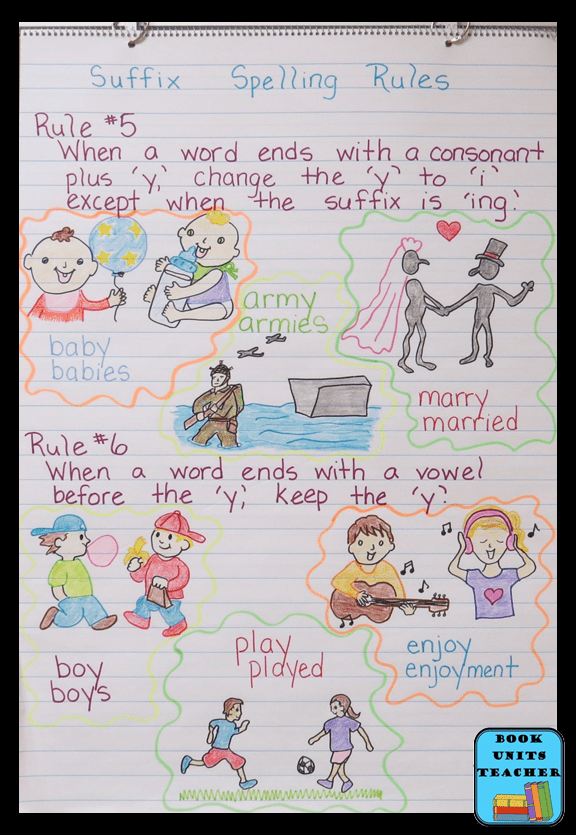 Suffix Spelling Rules
Rule #5
When a word ends with a consonant
plus 'y,' change the 'y' to 'i'
except when the suffix is 'ing.'
baby
babies
army
armies
marry
married
Rule #6
When a word ends with a vowel
before the 'y,' keep the 'y.'
boy
boy's
play
played
enjoy
enjoyment
BOOK
UNITS
TEACHER